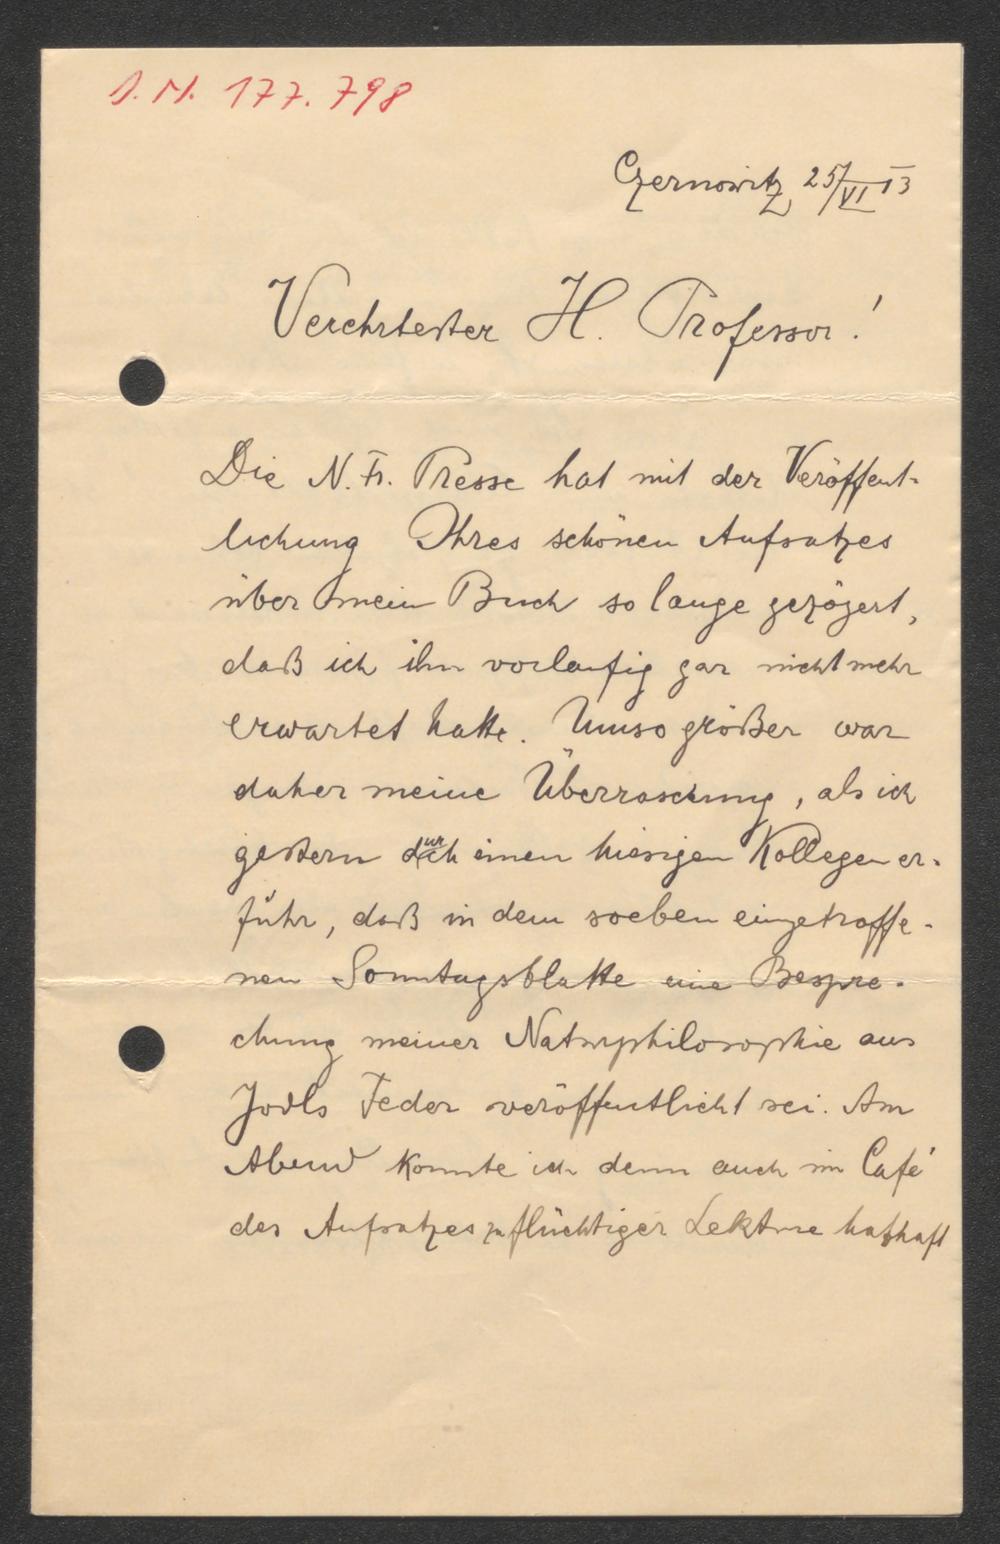 I. N. 177.798
Czernowitz, 25/VI 13
Verehrtester H. Professor!
Die N. Fr. Presse hat mit der Veröffent-
lichung Ihres schönen Aufsatzes
über mein Buch so lange gezögert,
daß ich ihn vorläufig gar nicht mehr
erwartet hatte. Umso größer war
daher meine Überraschung, als ich
gestern durch einen hiesigen Kollegen er-
fuhr, daß in dem soeben eingetroffe-
nen Sonntagsblatte eine Bespre-
chung meiner Naturphilosophie aus
Jodls Feder veröffentlicht sei. Am
Abend konnte ich denn auch im Café
des Aufsatzes zu flüchtiger Lektüre habhaft